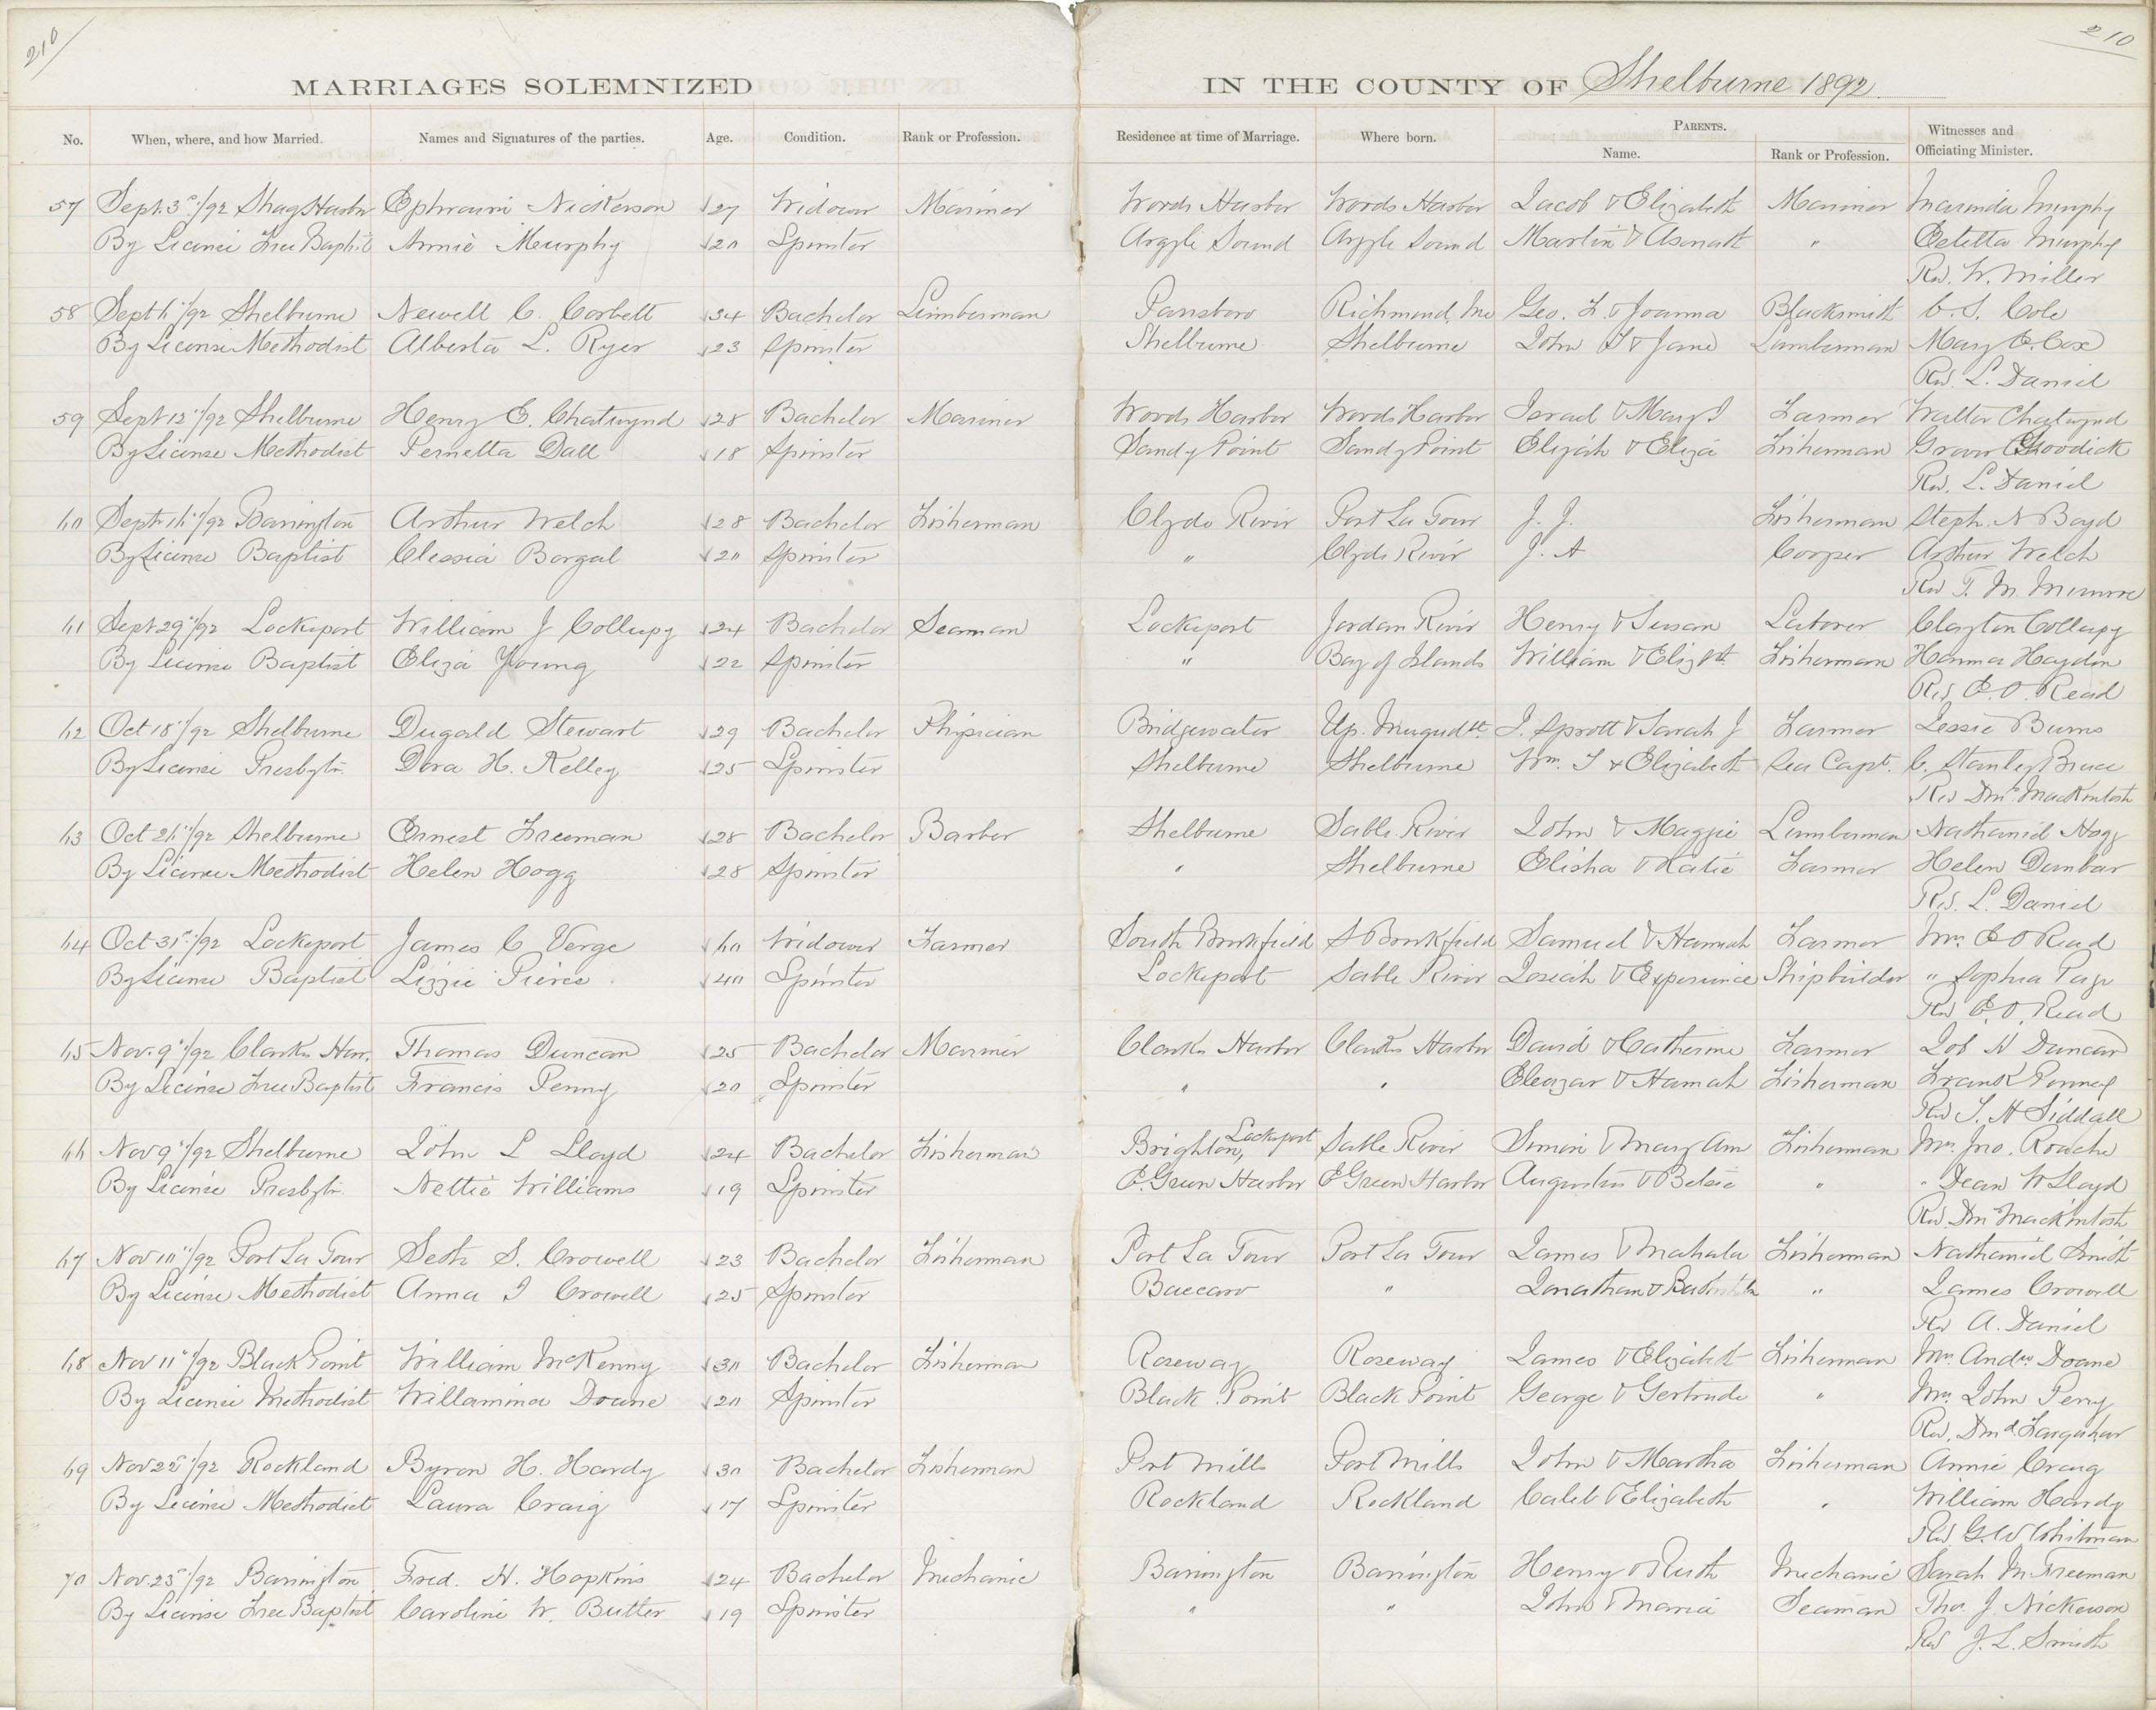 210
210
MARRIAGES SOLEMNIZED IN THE COUNTY OF Shelburne 1892.
No. When, where, and how Married. Names and Signatures of the parties. Age. Condition. Rank or Profession. Residence at time of Marriage. Where born. PARENTS. Name. Rank or Profession. Witnesses and Officiating Minister.
57 Sept. 3 /92 Shag Harbor Ephraim Nickerson 27 Widower Mariner Woods Harbor Woods Harbor Jacob & Elizabeth Mariner Murphy
By License Free Baptist Annie Murphy 20 Spinster Argyle Sound Argyle Sound Martin & Asenath " Murphy
Rev. W. Miller
58 Sept 6 /92 Shelburne Newell C. Corbett 34 Bachelor Lumberman Parrsboro Richmond, Me Geo. F. & Joanna Blacksmith C. S. Cole
By License Methodist Alberta L. Ryer 23 Spinster Shelburne Shelburne John & Jane Lumberman Mary Cox
Rev. L. Daniel
59 Sept 12 /92 Shelburne Henry E. Chatwynd 28 Bachelor Mariner Woods Harbor Woods Harbor Israel & Mary J Farmer Walter Chatwynd
By License Methodist Pernetta Dall 18 Spinster Sandy Point Sandy Point Elijah & Eliza Fisherman Goodick
Rev. L. Daniel
60 Sept 16 /92 Barrington Arthur Welch 28 Bachelor Fisherman Clyde River Port La Tour J. J. Fisherman Steph. N Boyd
By License Baptist Clessia Borgal 20 Spinster " Clyde River J. A Cooper Arthur Welch
Rev T. M. Munro
61 Sept 29 /92 Lockeport William J Collupy 24 Bachelor Seaman Lockeport Jordan River Henry & Susan Laborer Clayton Collupy
By License Baptist Eliza Young 22 Spinster " Bay of Islands William & Elizbt. Fisherman Haydon
Rev E. O. Read
62 Oct 18 /92 Shelburne Dugald Stewart 29 Bachelor Phisician Bridgewater Up. Musquodt. J. Sprott & Sarah J Farmer Jessie Burns
By License Presbytn. Dora H. Kelley 25 Spinster Shelburne Shelburne Wm. & Elizabeth Sea Capt. C. Stanley Bruce
Rev Dm MacKintosh
63 Oct 26 /92 Shelburne Ernest Freeman 28 Bachelor Barber Shelburne Sable River John & Maggie Lumberman Nathaniel Hogg
By License Methodist Helen Hogg 28 Spinster " Shelburne Elisha & Katie Farmer Helen Dunbar
Rev. L. Daniel
64 Oct 31 /92 Lockeport James C Verge 60 Widower Farmer South Brookfield S Brookfield Samuel & Hannah Farmer Mrs E O Read
By License Baptist Lizzie Pierce 40 Spinster Lockeport Sable River Josiah & Experience Shipbuilder " Sophia Page
Rev E. O. Read
65 Nov. 9 /92 Clarks Har. Thomas Duncan 25 Bachelor Mariner Clarks Harbor Clarks Harbor David & Catherine Farmer Job H Duncan
By License Free Baptist Francis Penny 20 Spinster " " Eleazar & Hannah Fisherman Frank Penney
Rev T. H Siddall
66 Nov 9 /92 Shelburne John L Lloyd 24 Bachelor Fisherman Brighton, Lockeport Sable River Simon & Mary Ann Fisherman Mrs. Jno. Roache
By License Presbytn. Nettie Williams 19 Spinster E. Green Harbor E Green Harbor Augustus & Betsie " " Dean W Lloyd
Rev Dm MacKintosh
67 Nov 10 /92 Port La Tour Seth S. Crowell 23 Bachelor Fisherman Port La Tour Port La Tour James & Mahala Fisherman Nathaniel Smith
By License Methodist Anna J Crowell 25 Spinster Baccaro " Jonathan & " James Crowell
Rev A. Daniel
68 Nov 11 /92 Black Point William McKenny 30 Bachelor Fisherman Roseway Roseway James & Elizabeth Fisherman Mrs. Andw Doane
By License Methodist Willamina Doane 20 Spinster Black Point Black Point George & Gertrude " Mrs. John Perry
Rev. Dmd Farquhar
69 Nov 22 /92 Rockland Byron H. Hardy 30 Bachelor Fisherman Port Mills Port Mills John & Martha Fisherman Annie Craig
By License Methodist Laura Craig 17 Spinster Rockland Rockland Caleb & Elizabeth " William Hardy
Rev G. W Whitman
70 Nov. 23 /92 Barrington Fred. H. Hopkins 24 Bachelor Mechanic Barrington Barrington Henry & Ruth Mechanic Sarah M. Freeman
By License Free Baptist Caroline W. Butler 19 Spinster " " John & Maria Seaman Tho. J. Nickerson
Rev J. L. Smith